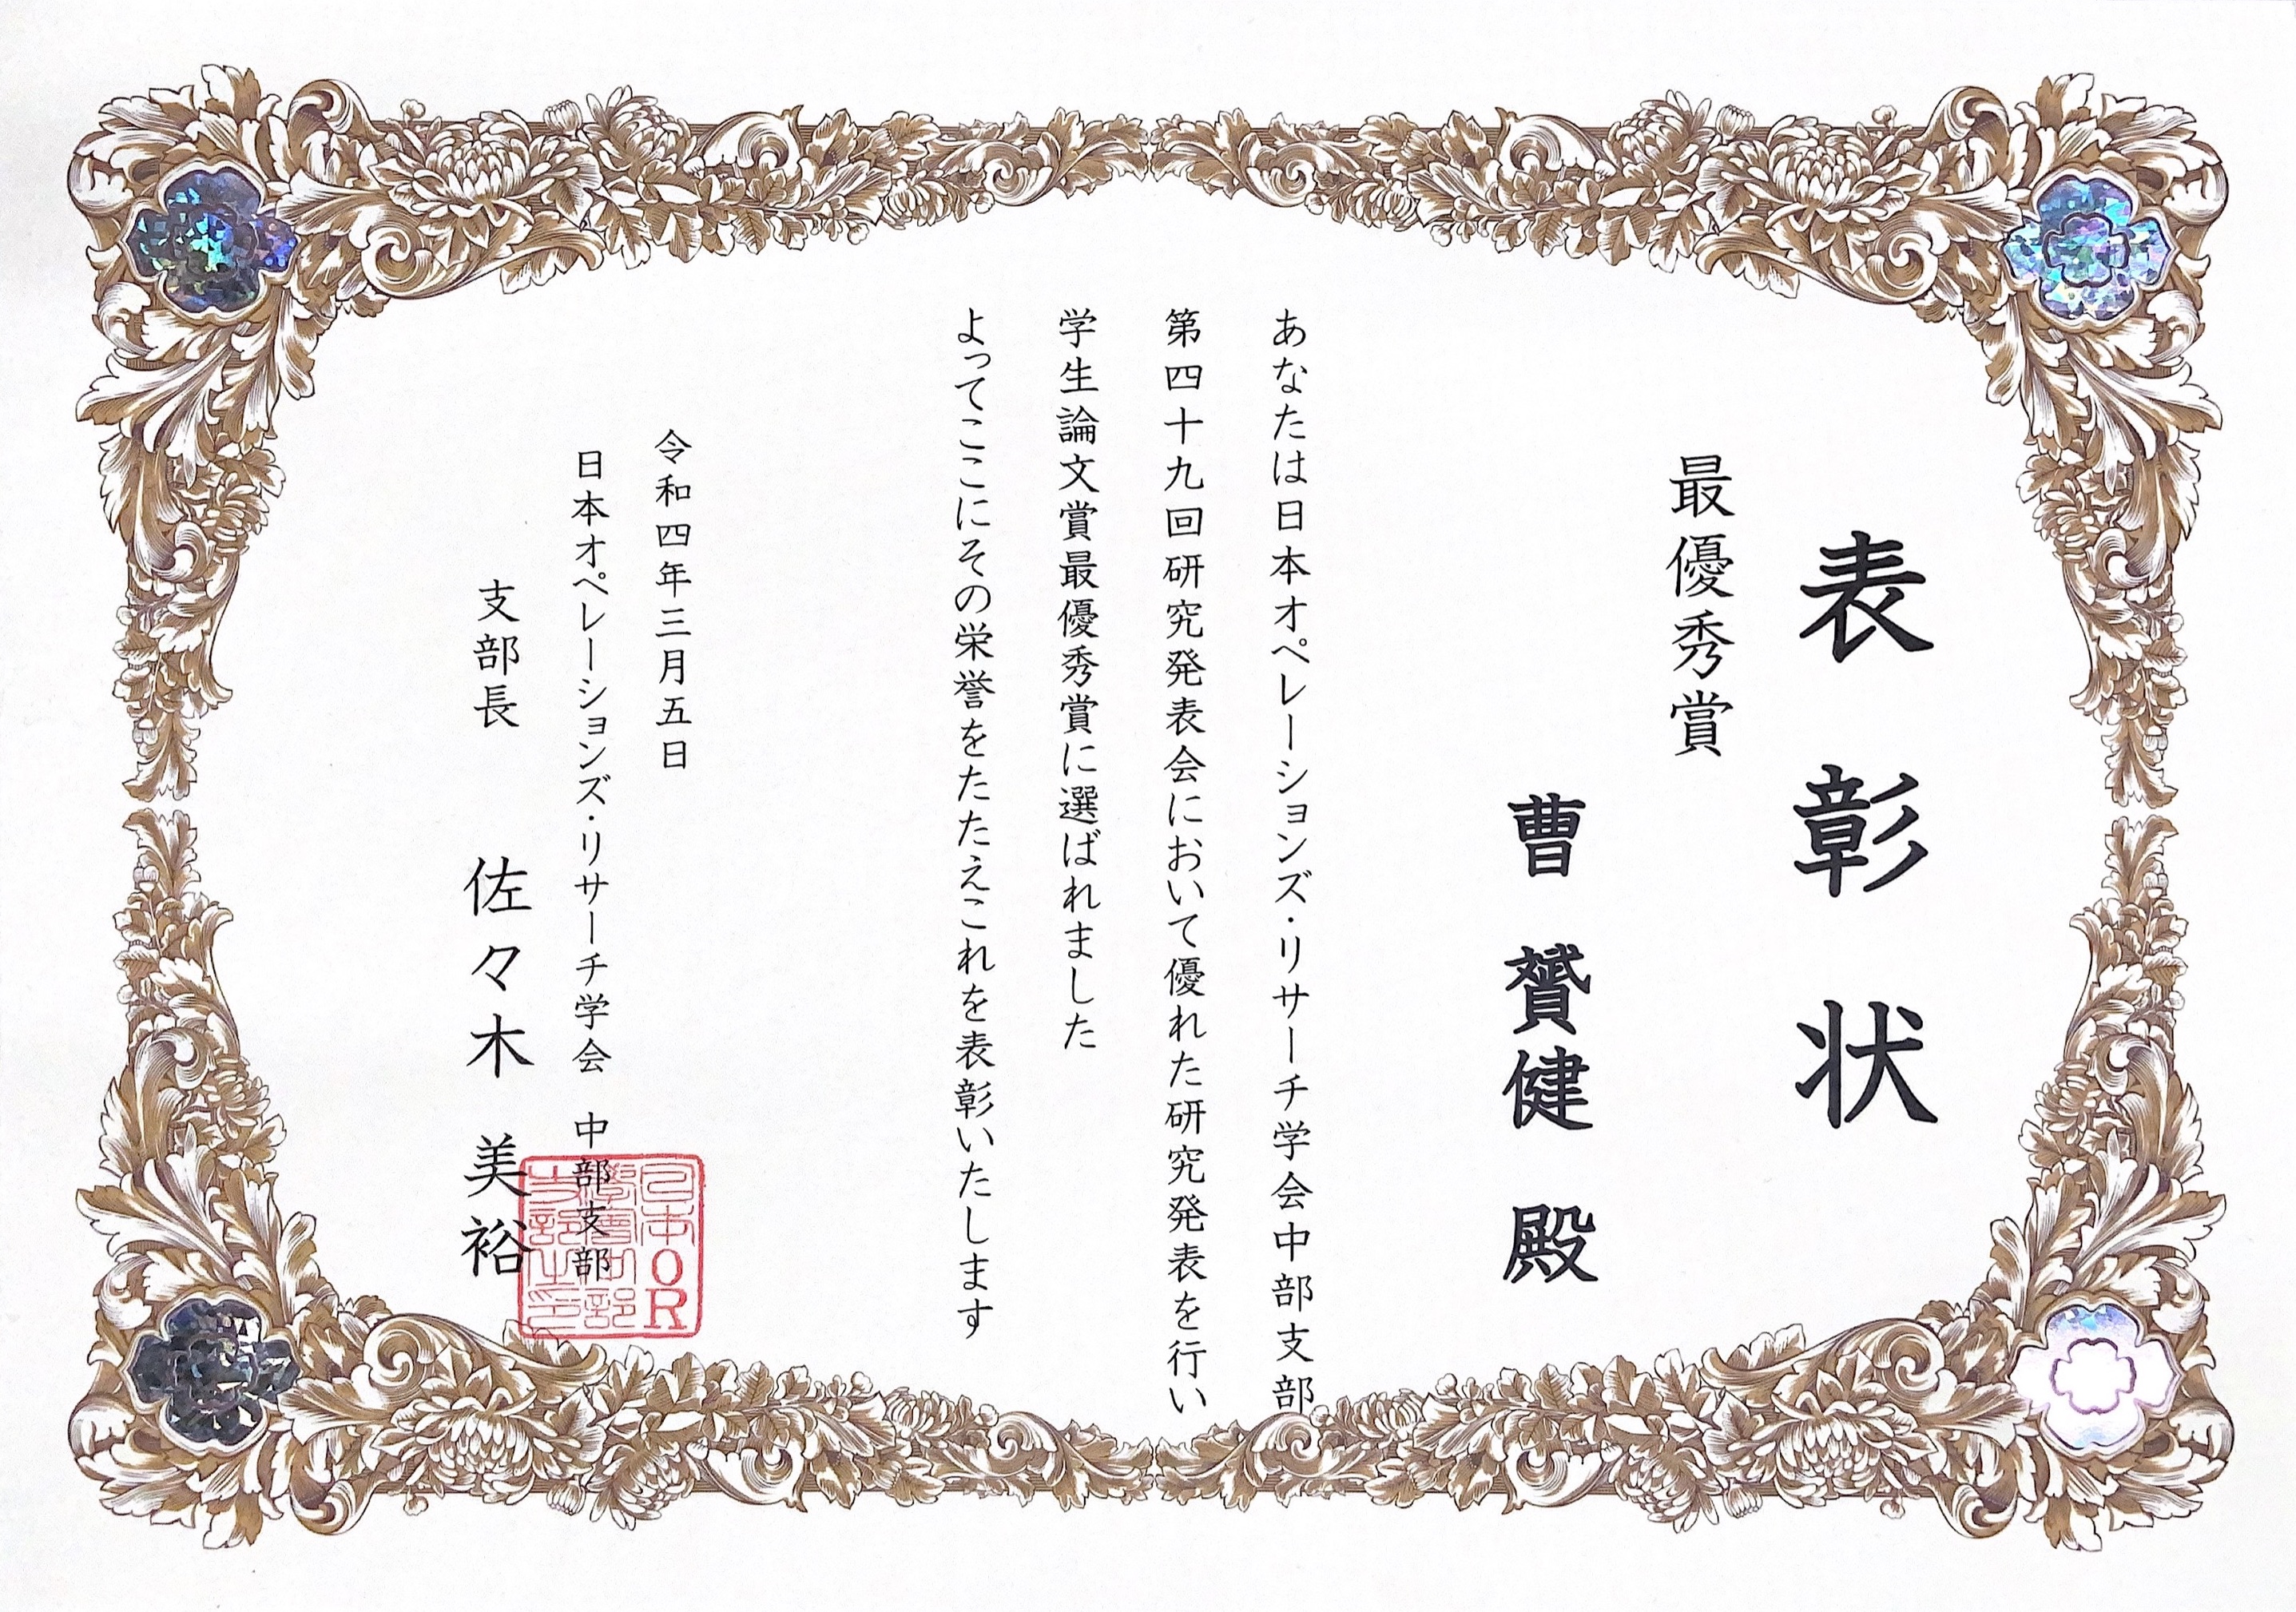 表彰状
最優秀賞
曹 贇健 殿
あなたは日本オペレーションズ・リサーチ学会中部支部
第四十九回研究発表会において優れた研究発表を行い
学生論文賞最優秀賞に選ばれました
よってここにその栄誉をたたえこれを表彰いたします
令和四年三月五日
日本オペレーションズ・リサーチ学会 中部支部
支部長 佐々木 美裕
日本OR
學會中部
支部之印